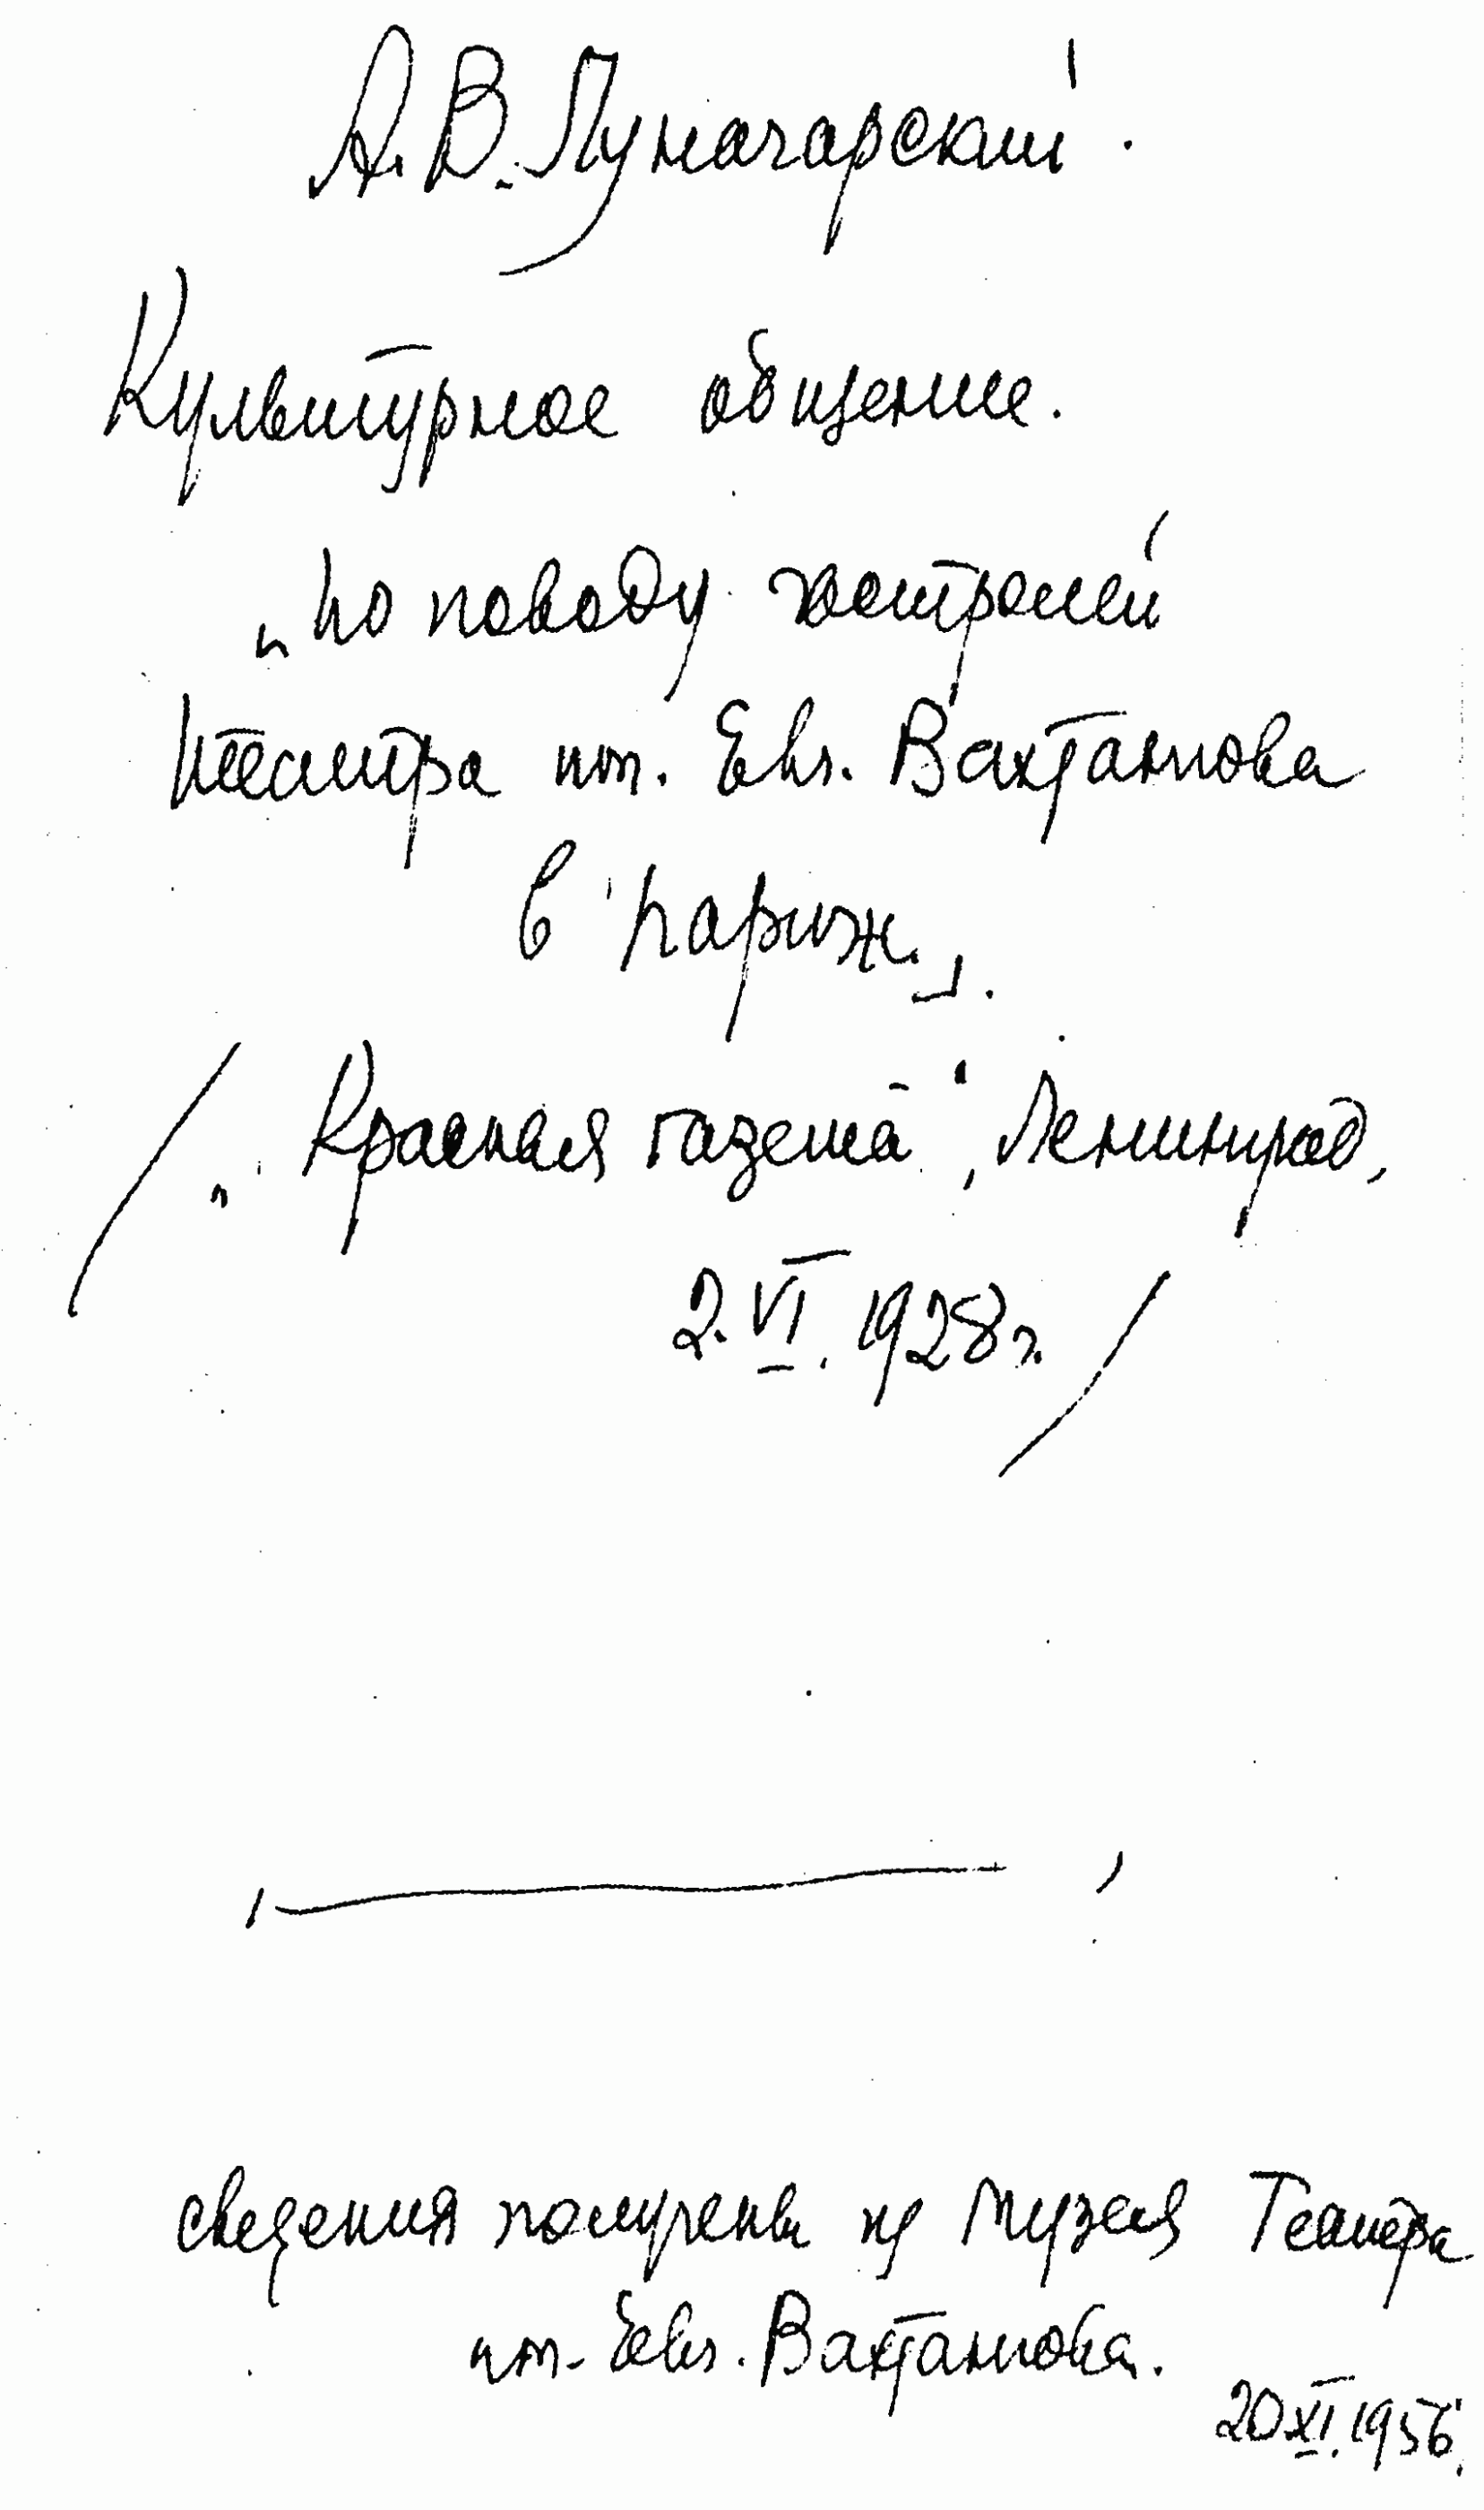 А. В. Луначарский.
Культурное общение.
„По поводу гастролей
театра им. Евг. Вахтангова
в Париж“.
/„Красная газета“, Ленинград,
2.VI.1928 г./
Сведения получены из Музея Театра
им. Евг. Вахтангова.
20 XI.1956.